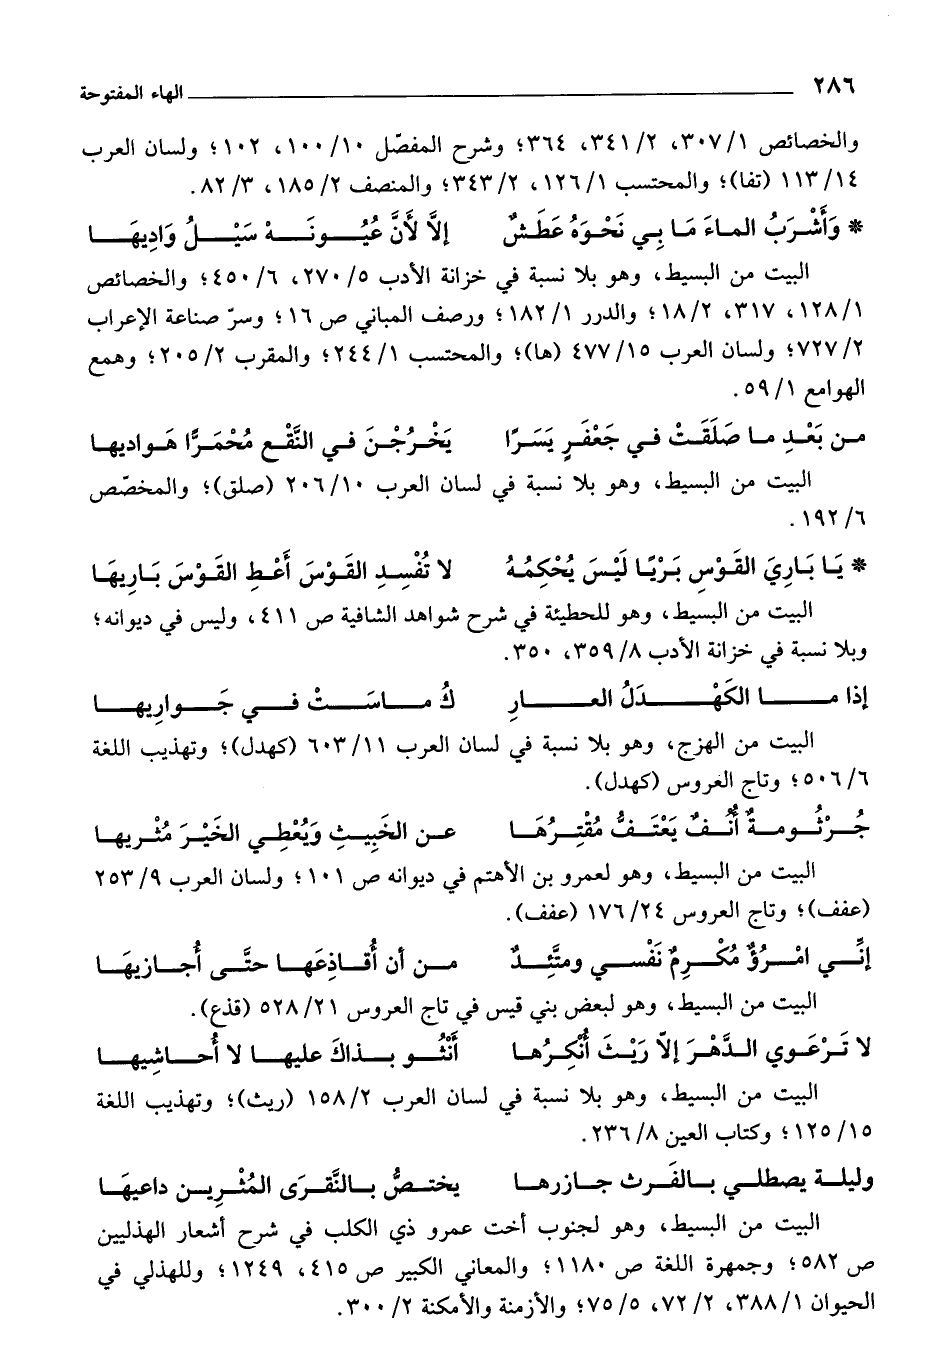 ٢٨٦ الهاء المفتوحة
والخصائص ١/ ٣٠٧، ٢/ ٣٤١، ٣٦٤؛ وشرح المفصّل ١٠/ ١٠٠، ١٠٢؛ ولسان العرب
١٤/ ١١٣ (تفا)؛ والمحتسب ١/ ١٢٦، ٢/ ٣٤٣؛ والمنصف ٢/ ١٨٥، ٣/ ٨٢.
* وَأَشْرَبُ الماءَ مَا بِي نَحْوَهُ عَطَشٌ إلاَّ لأَنَّ عُيُونَهْ سَيْلُ وَادِيهَا
البيت من البسيط، وهو بلا نسبة في خزانة الأدب ٥/ ٢٧٠، ٦/ ٤٥٠؛ والخصائص
١/ ١٢٨، ٣١٧، ٢/ ١٨؛ والدرر ١/ ١٨٢؛ ورصف المباني ص ١٦؛ وسرّ صناعة الإعراب
٢/ ٧٢٧؛ ولسان العرب ١٥/ ٤٧٧ (ها)؛ والمحتسب ١/ ٢٤٤؛ والمقرب ٢/ ٢٠٥؛ وهمع
الهوامع ١/ ٥٩.
من بَعْدِ ما صَلَقَتْ في جَعْفَرٍ يَسَرًا يَخْرُجْنَ في النَّقْعِ مُحْمَرًّا هَواديها
البيت من البسيط، وهو بلا نسبة في لسان العرب ١٠/ ٢٠٦ (صلق)؛ والمخصّص
٦/ ١٩٢.
* يَا بَارِيَ القَوْسِ بَرْيًا لَيْسَ يُحْكِمُهُ لا تُفْسِدِ القَوْسَ أَعْطِ القَوْسَ بَارِيهَا
البيت من البسيط، وهو للحطيئة في شرح شواهد الشافية ص ٤١١، وليس في ديوانه؛
وبلا نسبة في خزانة الأدب ٨/ ٣٥٩، ٣٥٠.
إذا ما الكَهْدَلُ العارِ كُ ماسَتْ في جَوارِيها
البيت من الهزج، وهو بلا نسبة في لسان العرب ١١/ ٦٠٣ (كهدل)؛ وتهذيب اللغة
٦/ ٥٠٦؛ وتاج العروس (كهدل).
جُرْثُومةٌ أُنُفٌ يَعْتَفُّ مُقْتِرُهَا عن الخَبِيثِ وَيُعْطِي الخَيْرَ مُثْريها
البيت من البسيط، وهو لعمرو بن الأهتم في ديوانه ص ١٠١؛ ولسان العرب ٩/ ٢٥٣
(عفف)؛ وتاج العروس ٢٤/ ١٧٦ (عفف).
إنِّي امْرُؤٌ مُكْرِمٌ نَفْسي ومتَّئِدٌ من أن أُقاذِعَها حتَّى أُجازيهَا
البيت من البسيط، وهو لبعض بني قيس في تاج العروس ٢١/ ٥٢٨ (قذع).
لا تَرْعَوي الدَّهْرَ إلاّ رَيْثَ أُنْكِرُها أَنْثُو بذاكَ عليها لا أُحاشِيها
البيت من البسيط، وهو بلا نسبة في لسان العرب ٢/ ١٥٨ (ريث)؛ وتهذيب اللغة
١٥/ ١٢٥؛ وكتاب العين ٨/ ٢٣٦.
وليلة يصطلي بالفَرث جازرها يختصُّ بالنَّقرَى المُثْرِين داعيهَا
البيت من البسيط، وهو لجنوب أخت عمرو ذي الكلب في شرح أشعار الهذليين
ص ٥٨٢؛ وجمهرة اللغة ص ١١٨٠؛ والمعاني الكبير ص ٤١٥، ١٢٤٩؛ وللهذلي في
الحيوان ١/ ٣٨٨، ٢/ ٧٢، ٥/ ٧٥؛ والأزمنة والأمكنة ٢/ ٣٠٠.